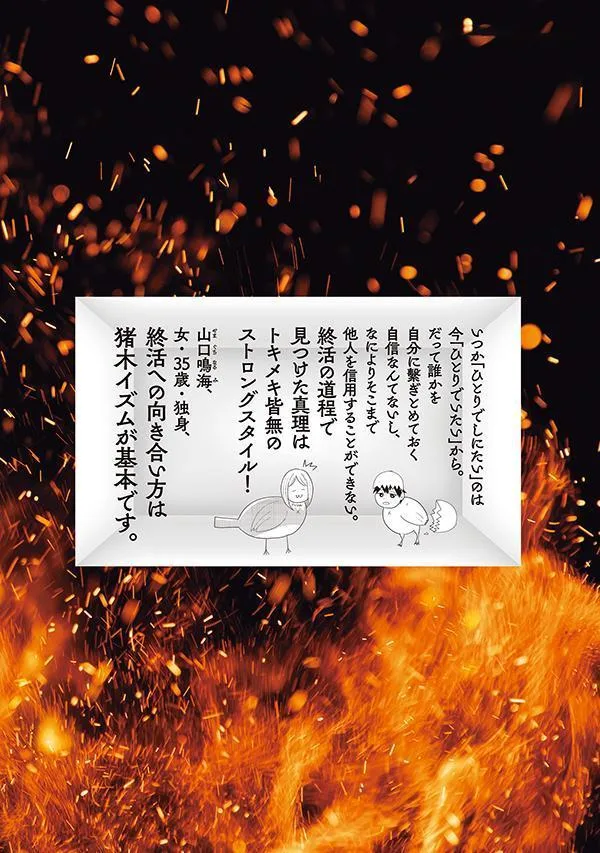 いつか「ひとりでしにたい」のは
今「ひとりでいたい」から。
だって誰かを
自分に繋ぎとめておく
自信なんてないし、
なによりそこまで
他人を信用することができない。
終活の道程で
見つけた真理は
トキメキ皆無の
ストロングスタイル！
山口鳴海、
女・35歳・独身、
終活への向き合い方は
猪木イズムが基本です。